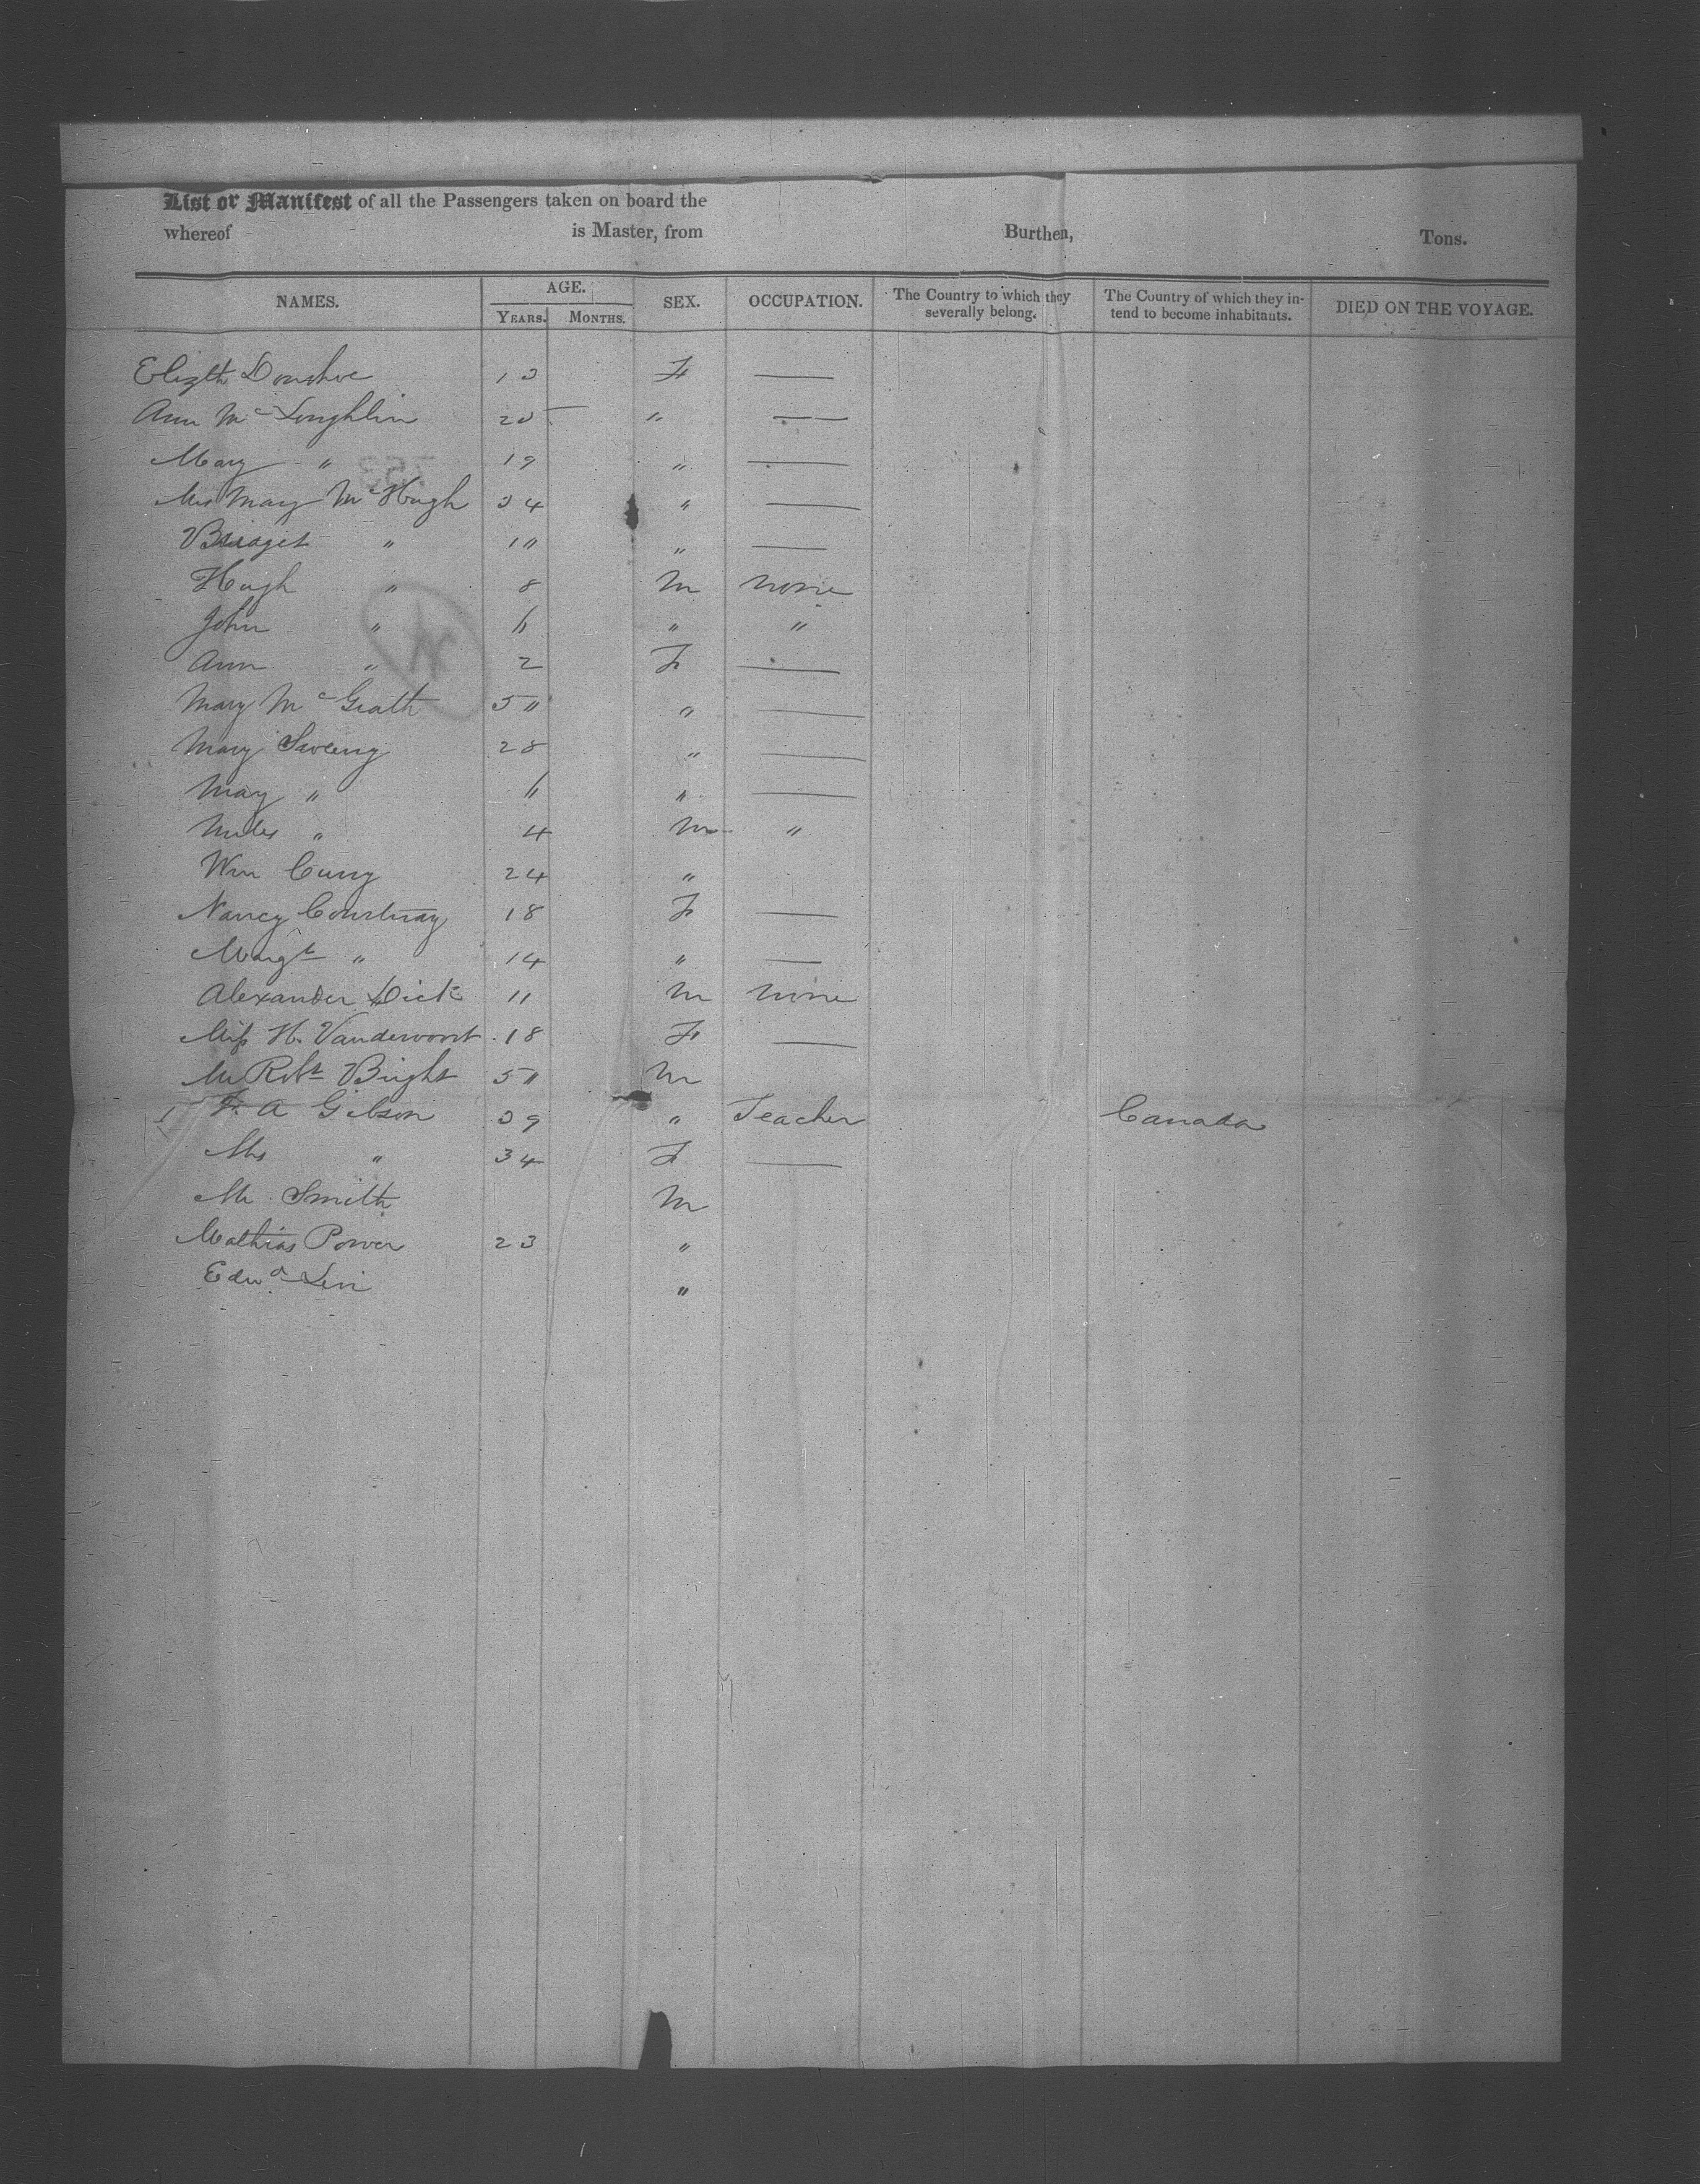 List or Manifest of all the Passengers taken on board the
whereof is Master, from Burthen, Tons.
NAMES. AGE. YEARS. MONTHS. SEX. OCCUPATION. The Country to which they severally belong. The Country of which they intend to become inhabitants. DIED ON THE VOYAGE.
Elizth Donohoe 13 F —
Ann McLoughlin 20 " —
Mary " 19 " —
Mrs Mary McHugh 34 " —
Bridget " 10 " —
Hugh " 8 M none
John " 6 " "
Ann " 2 F —
Mary McGrath 50 " —
Mary Sweeny 28 " —
Mary " 6 " —
Miles " 4 M "
Wm Curry 24 "
Nancy Courtnay 18 F —
Margt " 14 " —
Alexander Dick 11 M none
Miss H. Vandervoort 18 F —
Mr Robt Bright 50 M
A Gibson 39 " Teacher Canada
Mrs " 34 F —
Mr Smith M
Mathias Power 23 "
Edwd Levi "